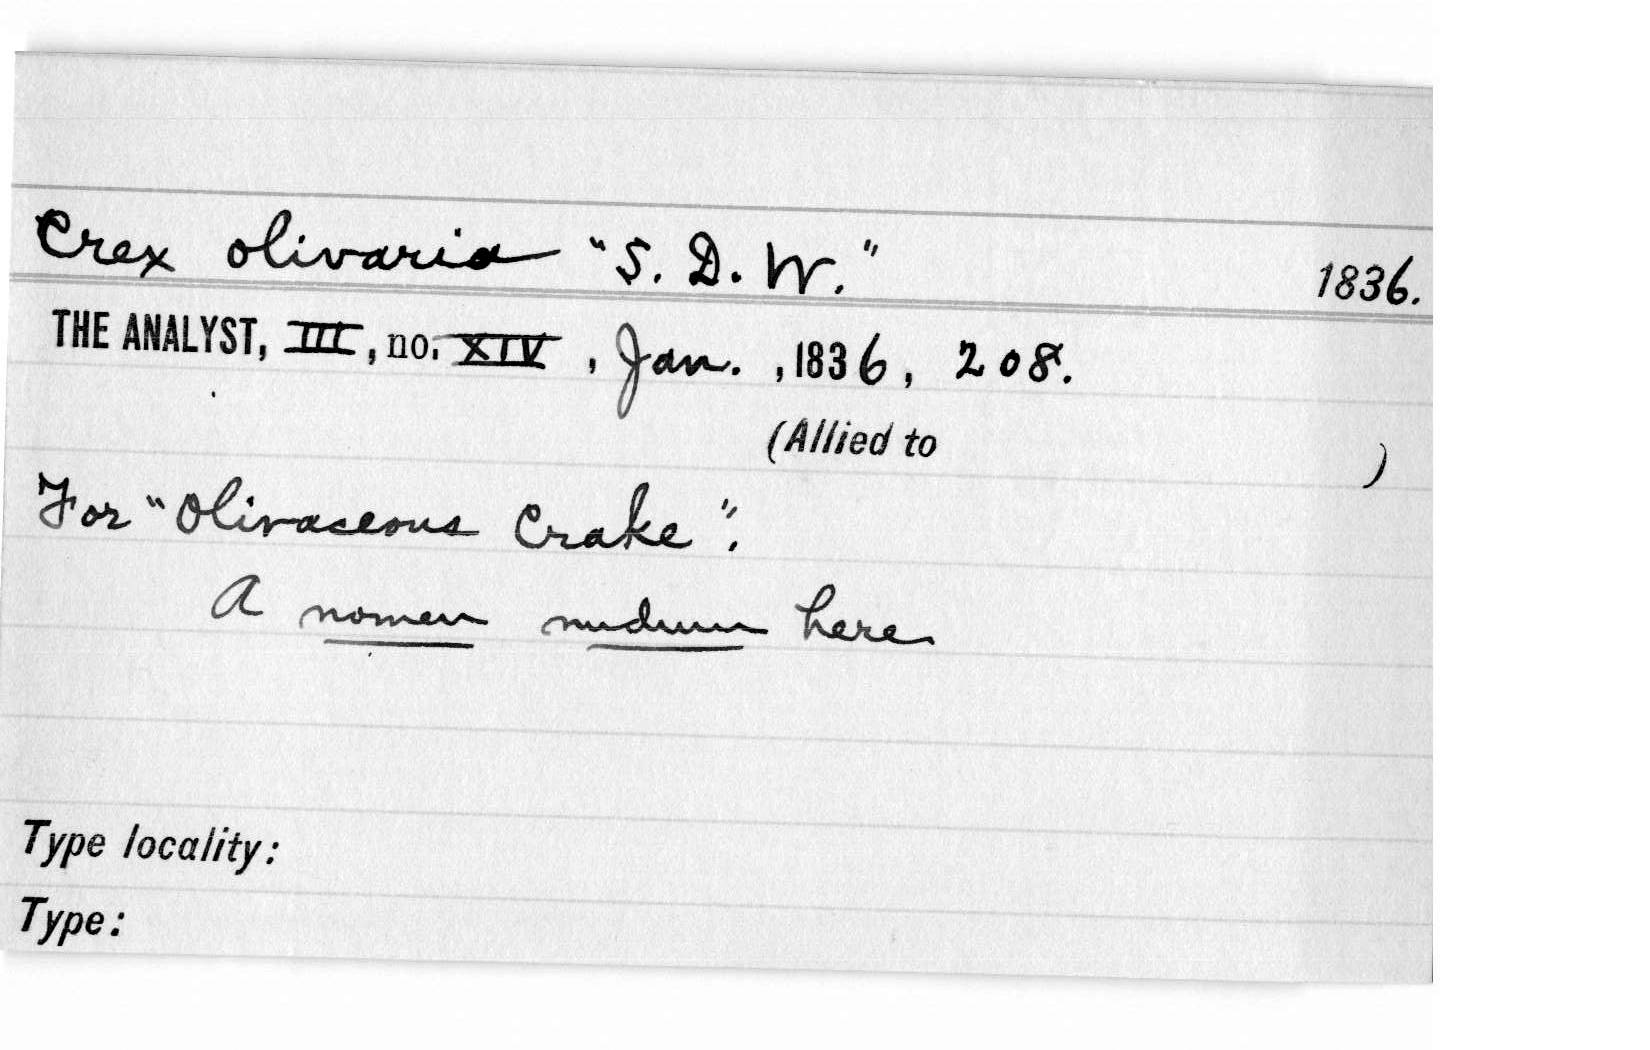 Crex olivaria "S. D. W." 1836.
THE ANALYST, III, no. XIV, Jan., 1836, 208.
(Allied to )
For "Olivaceous Crake".
A nomen nudum here
Type locality:
Type: